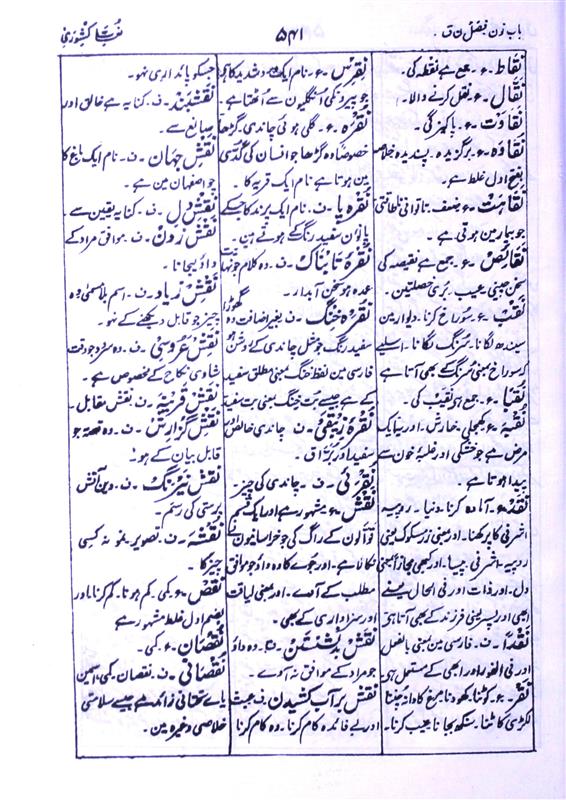 باب نون فصل ن ق
۵۴۱
لغات کشوری
نقاط ۔ ع ۔ جمع ہے نقطہ کی ۔
نقال ۔ ع ۔ نقل کرنے والا ۔
نقاوت ۔ ع ۔ پاکیزگی ۔
نقاوہ ۔ ع ۔ برگزیدہ ۔ پسندیدہ خلاصہ
بفتح اول غلط ہے ۔
نقاہت ۔ ع ۔ ضعف ۔ ناتوانی ناطاقتی
جو بیمار مین ہوتی ہے ۔
نقائص ۔ ع ۔ جمع ہے نقیصہ کی
عیب ۔ بری خصلتین ۔
نقب ۔ ع ۔ سوراخ کرنا ۔ دیوار مین
سیندھ لگانا ۔ سرنگ لگانا ۔ اسلیے
کہ سوراخ بمعنی سرنگ کے بھی آتا ہے
نقبا ۔ ع ۔ جمع ہی نقیب کی ۔
نقبہ ۔ ع ۔ کھجلی ۔ خارش ۔ اور ایک
مرض ہے جو خشکی اور غلبۂ خون سے
پیدا ہوتا ہے ۔
نقد ۔ ع ۔ آمادہ کرنا ۔ دنیا ۔ روپیہ
اشرفی کا پرکھنا ۔ اور بمعنی زر مسکوک یعنی
روپیہ ۔ اشرفی ۔ پیسا ۔ اور کبھی مجازاً بمعنی
دل ۔ اور ذات اور فی الحال یعنے
ابھی اور پسر یعنی فرزند کے بھی آتا ہے
نقداً ۔ ف ۔ فارسی مین بمعنی بالفعل
اور فی الفور اور ابھی کے مستعمل ہے
نقر ۔ ع ۔ کوٹنا ۔ کھودنا مرغ کا دانہ چننا
لکڑی کا ٹنا ۔ سنکھ بجانا عیب کرنا ۔
نقرس ۔ ع ۔ نام ایک درد شدید کا ہی
جو پیر کی انگلیون سے اٹھتا ہے ۔
نقرہ ۔ ع ۔ گلی ہوئی چاندی ۔ گڑھا
خصوصاً وہ گڑھا جو انسان کی گدی
مین ہوتا ہے نام ایک قریہ کا ۔
نقرہ پا ۔ ف ۔ نام ایک پرند کا جسکے
پاؤن سفید رنگ کے ہوتے ہین ۔
نقرہ تابناک ۔ ف ۔ وہ کلام جو نہایت
عمدہ ہو سخن آبدار ۔
نقرہ خنگ ۔ ف ۔ بغیر اضافت وہ گھوڑا
سفید رنگ جو مثل چاندی کے روشن ہو
فارسی مین لفظ خنگ بمعنی مطلق سفید
کے ہے جیسے برف خنگ بمعنی برف سفید
نقرۂ زیبقی ۔ ف ۔ چاندی خالص
سفید اور براق ۔
نقرئی ۔ ف ۔ چاندی کی چیز ۔
نقش ۔ ع ۔ مشہور ہے اور ایک قسم
قوالون کے راگ کی جو خراسانیون نے
نکالا ہے ۔ اور جوے کا وہ داؤ جو موافق
مطلب کے آوے ۔ اور بمعنی لیاقت
اور سزاواری کے بھی ۔
نقش برنشستن ۔ ف ۔ وہ داؤ
جو مراد کے موافق نہ آوے ۔
نقش بر آب کشیدن ۔ ف ۔ عبث
اور بے فائدہ کام کرنا ۔ وہ کام کرنا
جسکو پائداری نہو ۔
نقشبند ۔ ف ۔ کنایہ ہے خالق اور
صانع سے ۔
نقش جہان ۔ ف ۔ نام ایک باغ کا
جو اصفہان مین ہے ۔
نقش دل ۔ ف ۔ کنایہ یقین سے ۔
نقش زدن ۔ ف ۔ موافق مراد کے
داؤ لیجانا ۔
نقش زیاد ۔ ف ۔ اسم بلا مسمٰی وہ
چیز جو قابل دیکھنے کے نہو ۔
نقش عروسی ۔ ف ۔ وہ سرود جو وقت
شادی نکاح کے مخصوص ہے ۔
نقش قرینہ ۔ ف ۔ نقش مقابل ۔
نقش گزارش ۔ ف ۔ وہ قصہ جو
قابل بیان کے ہو ۔
نقش نیرنگ ۔ ف ۔ دین آتش
پرستی کی رسم ۔
نقشہ ۔ ف ۔ تصویر ۔ نمونہ کسی
چیز کا ۔
نقص ۔ ع ۔ کمی ۔ کم ہونا ۔ کم کرنا ۔ اور
بضم اول غلط مشہور ہے
نقصان ۔ ع ۔ کمی ۔
نقصانی ۔ ف ۔ نقصان ۔ کمی ۔ اسمین
یاے تحتانی زائد ہے جیسے سلامتی
خلاصی وغیرہ مین ۔